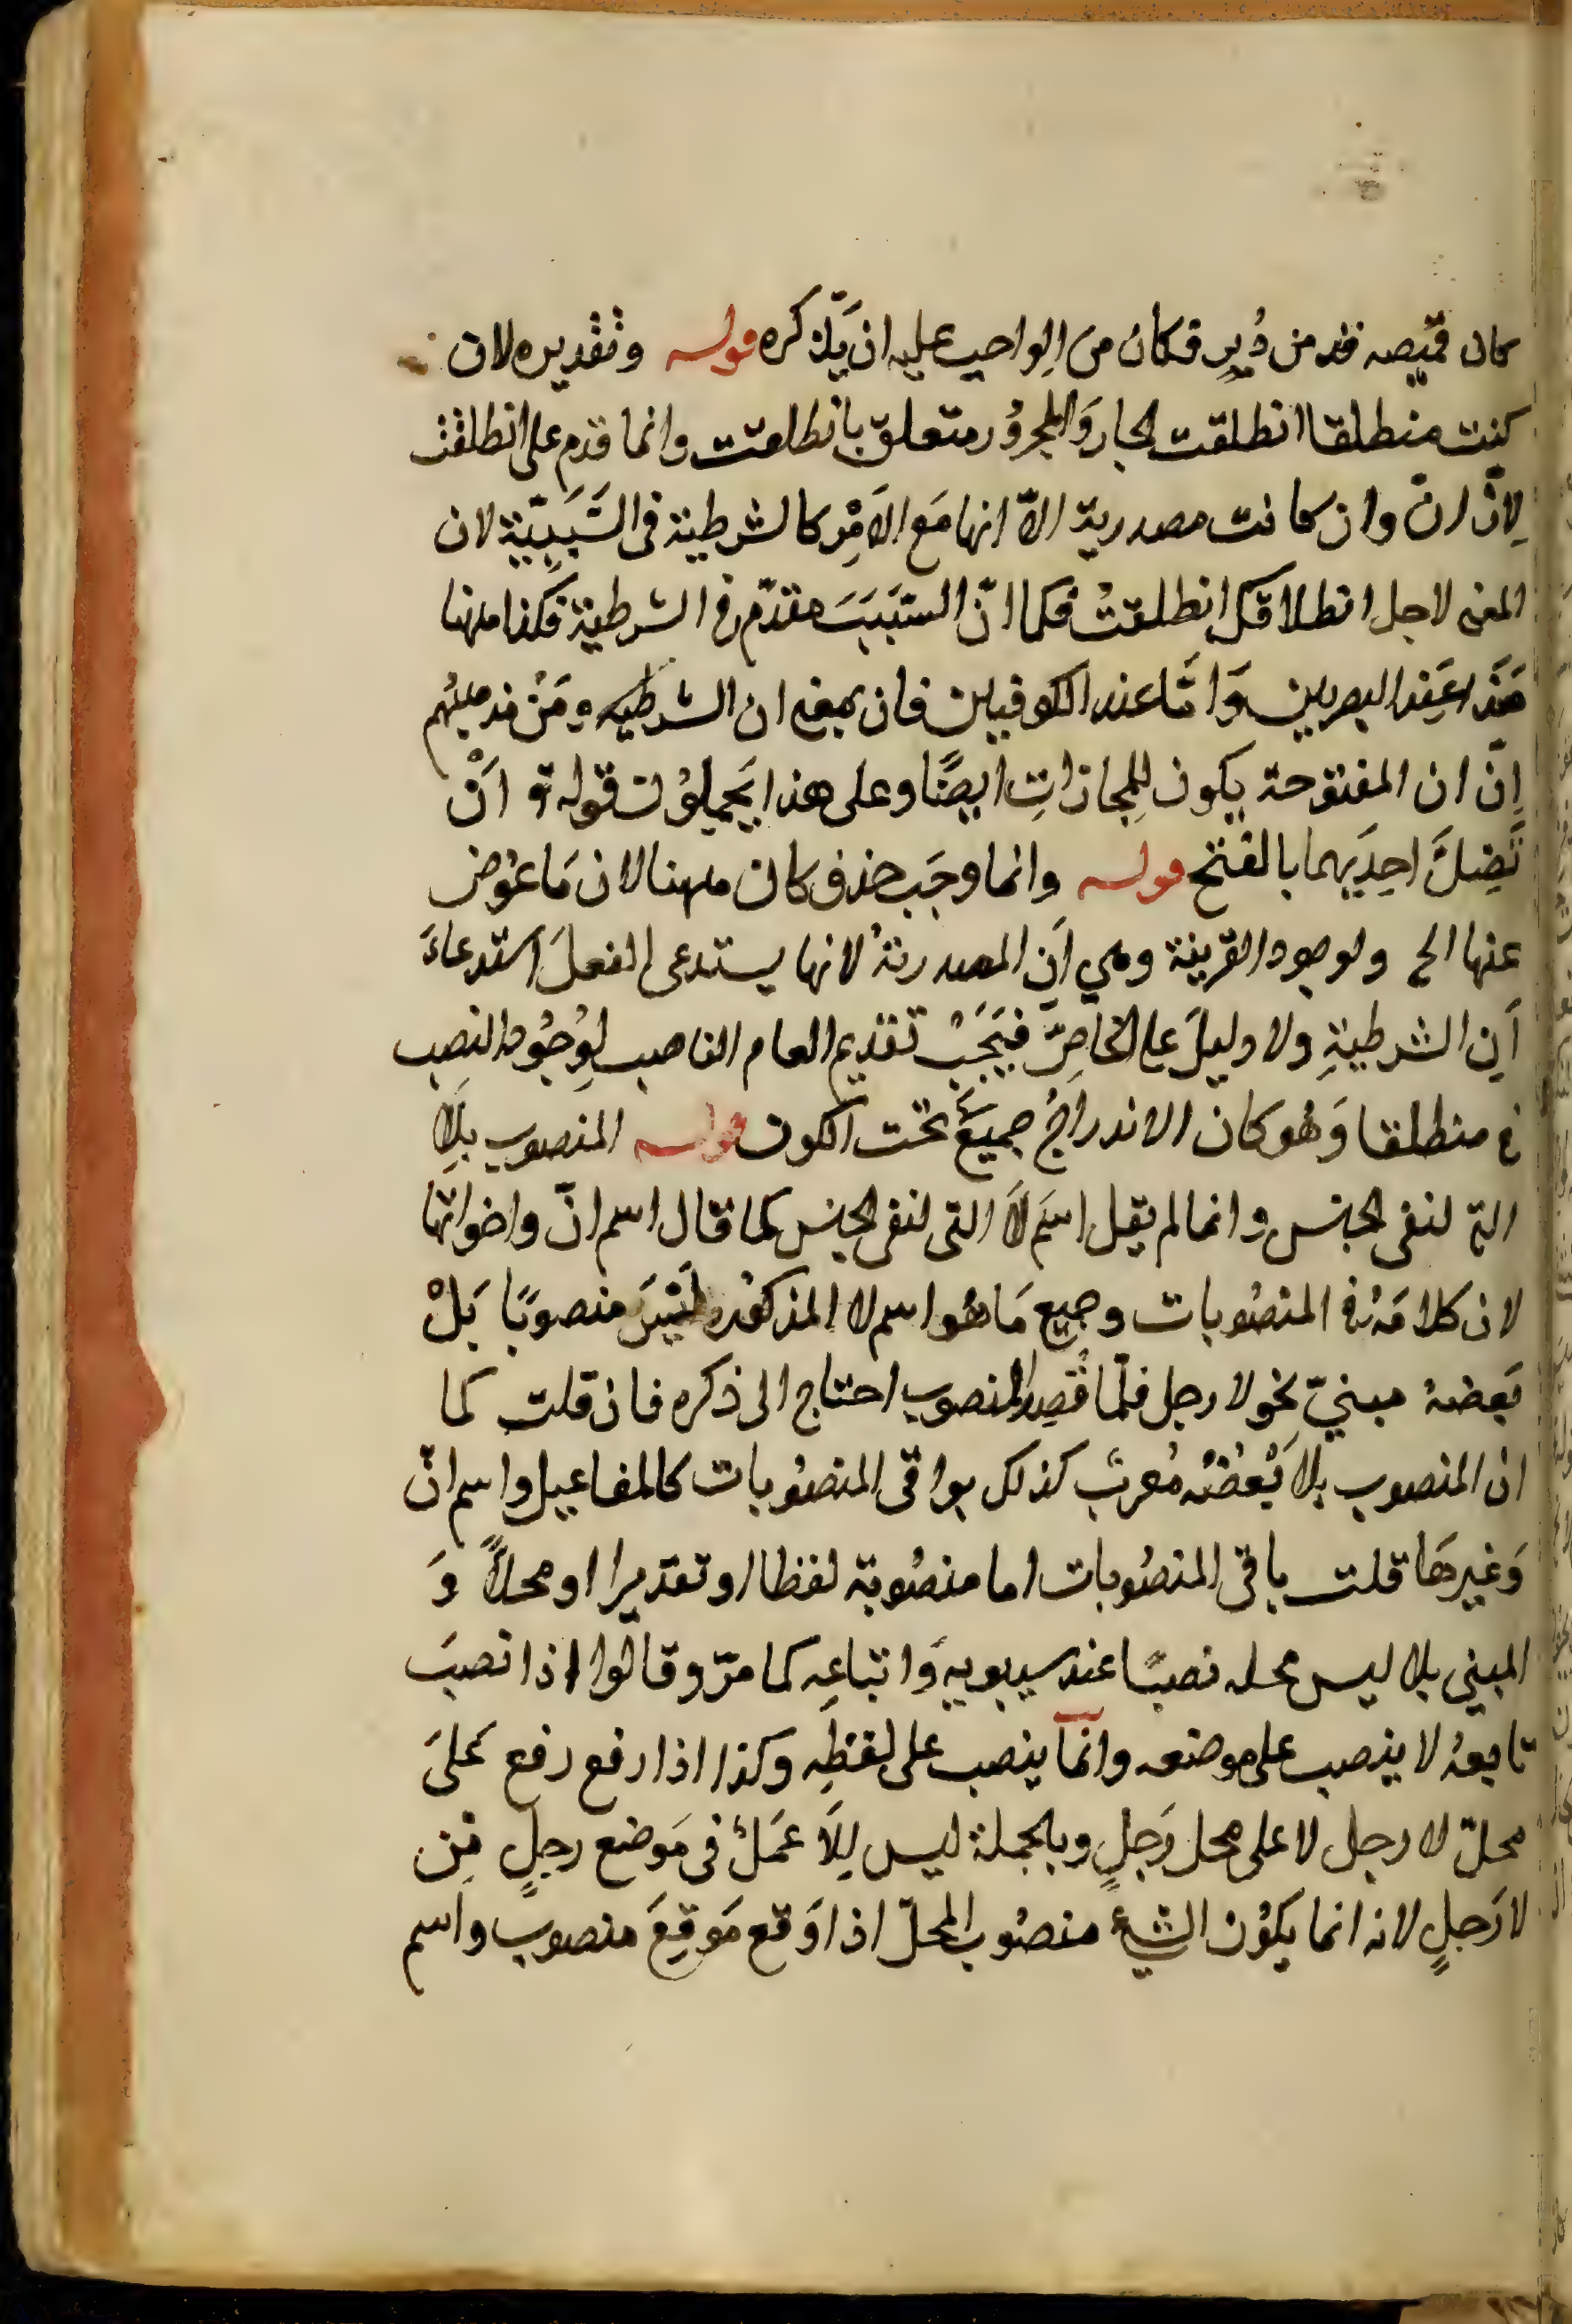 كان قميصه قد من دُبرٍ فكان من الواجب عليه ان يَذكره قوله وتقديره لان
كنت منطلقا انطلقت الجار وَالمجرُور متعلق بانطلقت وانما قدم على انطلقت
لِانّ ان وان كانت مصدرية الاّ انها مَع الاَمْر كالشرطية فى السَّبَبِيّة لان
المعنى لاجل انطلاقك انطلقتْ فكما انّ السّبَبَ متقدّم فى الشرطية فكذا ههنا
هَذا عِند البصريين وَامّا عند الكوفيين فان بمعنى ان الشرطيه ومَنْ مذهبهم
اِنّ ان المفتوحة يكون لِلمجازاتِ ايضًا وعلى هذا يَحملوُن قوله تع اَنْ
تَضِلَّ احِدَيهما بالفتح قوله وانما وجَب حذف كان ههنا لان مَا عوُض
عنها الخ ولوجود القرينة وهي اَن المصدرية لانها يستدعى الفعلَ استدعاءَ
اَن الشرطيةِ ولا دليلَ على الخاصِّ فيَجَبُ تقديم العام الناصب لِوُجُود النصب
فى منطلقا وَهُو كان الاندراجُ جميعَ تحت الكون قوله المنصوب بلِا
التى لنفى الجنس وانما لم يقل اسَم لاَ التى لنفى الجنس كما قال اسم انّ واخواتها
لان كلامَه فى المنصُوبات وجميع مَا هُو اسم لا المذكوُر لَيْسَ منصوبًا بَلْ
بَعضهُ مبنيّ نحو لا رجل فلّما قُصِد المنصوب احتاج الى ذكره فان قلت كما
ان المنصوب بلا بَعْضُهُ مُعربٌ كذلك بواقى المنصُوبات كالمفاعيل واسم انّ
وَغيرهَا قلت باقى المنصُوبات اما منصُوبة لفظا او تقديرا او محلاً وَ
المبني بلا ليس محله نصبًا عند سيبويه وَاتباعِه كما مرّ وقالوا اذا نصبَ
تابعهُ لا ينصب على موضعه وانمّا ينصب على لفظِه وكذا اذا رفع رفع عَلىَ
محلّ لا رجل لا على محل رَجلٍ وبالجملة ليس لِلاَ عمَلٌ فى مَوضع رجلٍ مِن
لا رَجلٍ لانه انما يكوُن الشيءُ منصُوب المحلّ اذا وَقع مَوقِعَ منصوب واسم